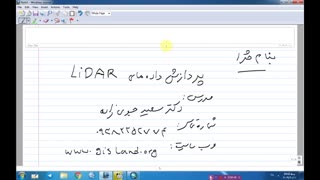 بنام خدا
پردازش داده های LiDAR
مدرس:
دکتر سعید حیدرزاده
شماره تماس:
وب سایت: www.gisland.org